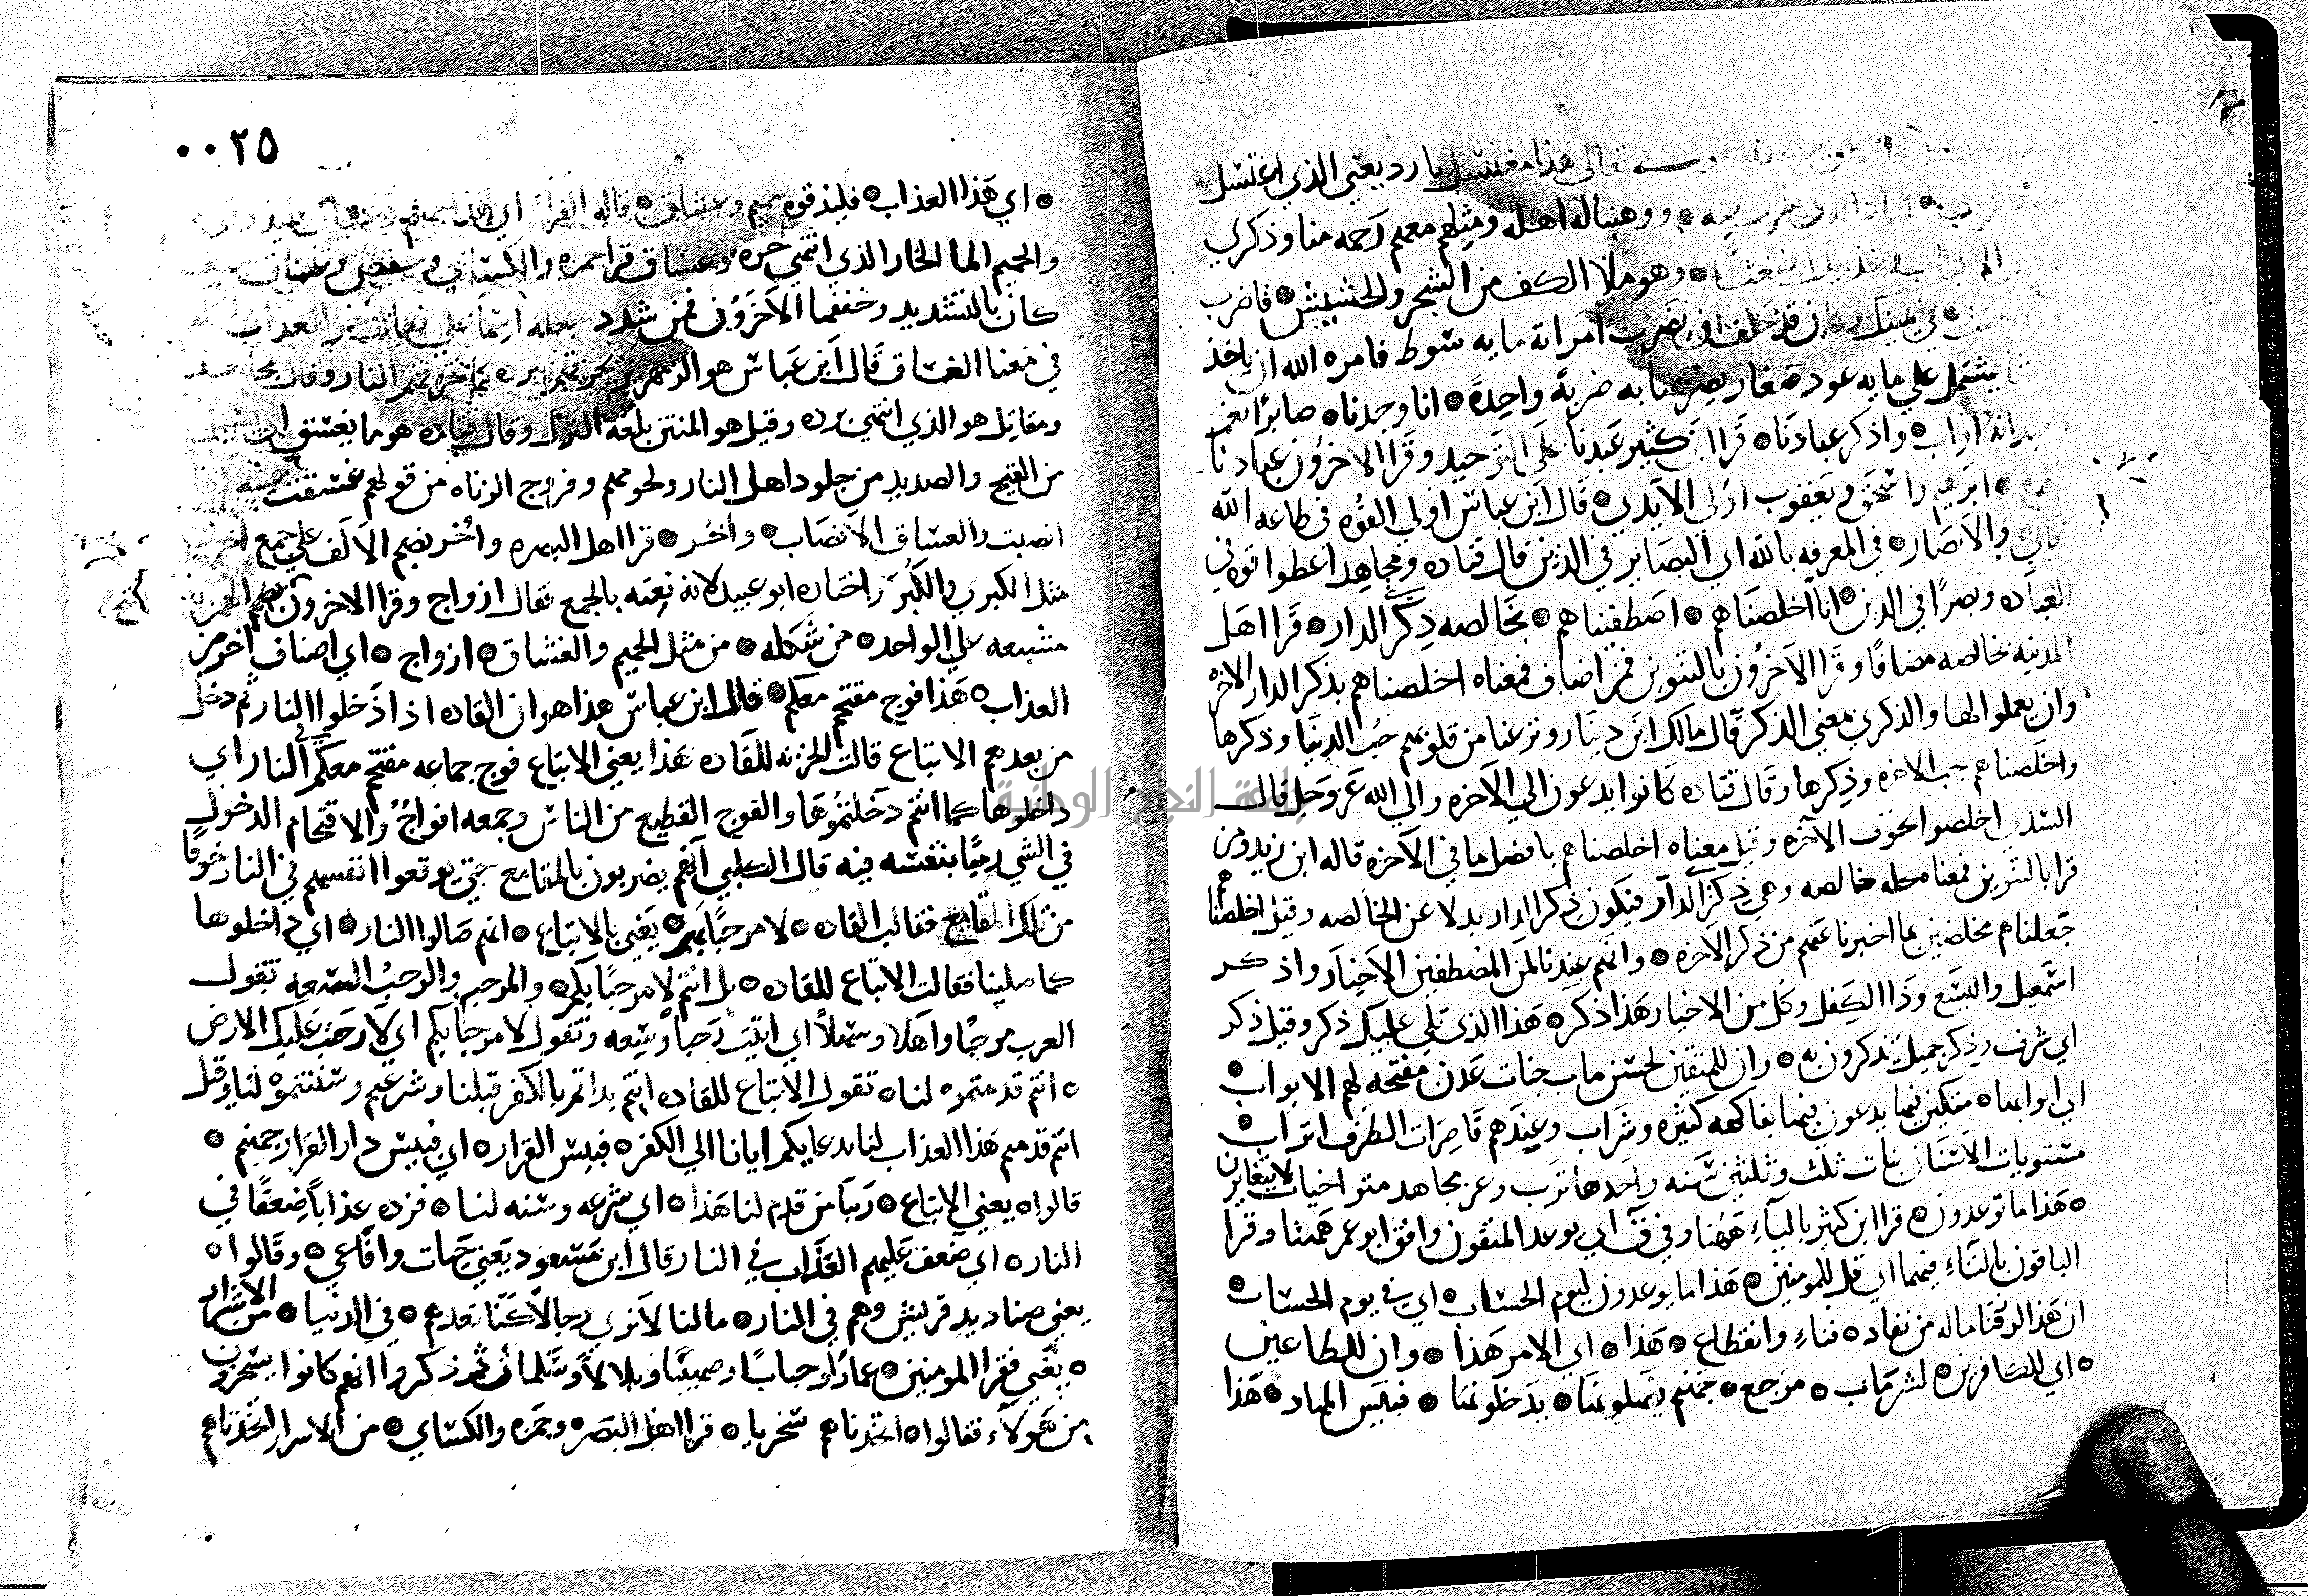 تعالى هذا مغتسل بارد يعني الذي اغتسل
ووهبنا له اهله ومثلهم معهم رحمه منا وذكري
وهو ملا الكف من الشجر والحشيش فاضرب
في يمينك ان يضرب امراته مايه سوط فامره الله ان ياخذ
يشتمل علي مايه عود صغار يضربها به ضربة واحدة انا وجدناه صابرًا نعم
اواب واذكر عبادناه قرا ابن كثير عبدنا علي التوحيد وقرا الاخرون عبادنا
ابرهيم واسحق ويعقوب اولي الايدي قال ابن عباس اولي القوه في طاعه الله
والابصاره في المعرفه بالله اي البصاير في الدين قال قتاده ومجاهد اعطوا قوه في
العباده وبصرًا في الدين انا اخلصناهم اصطفيناهم بخالصه ذكر الدار قرا اهل
المدينه خالصه مضافًا وقرا الاخرون بالتنوين فمن اضاف فمعناه اخلصناهم بذكر الدار الاخره
وان يعملوا لها والذكري بمعني الذكر قال مالك ابن دينار ونزعنا من قلوبهم حب الدنيا وذكرها
واخلصناهم بحب الاخره وذكرها وقال قتاده كانوا يدعون الي الاخره والي الله عز وجل قال
السدي اخلصوا بخوف الاخره وقيل معناه اخلصناهم بافضل ما في الاخره قاله ابن زيد ومن
قرا بالتنوين فمعنا محله خالصه وهي ذكر الدار فيكون ذكر الدار بدلا عن الخالصه وقيل اخلصناهم
جعلناهم مخلصين بما اخبرنا عنهم من ذكر الاخره وانهم عندنا لمن المصطفين الاخيار واذكر
اسمعيل واليسع وذا الكفل وكل من الاخيار هذا ذكره هذا الذي تلي عليك ذكر وقيل ذكر
اي شرف وذكر جميل تذكرون به وان للمتقين لحسن ماب جنات عدن مفتحه لهم الابواب
اي ابوابها متكين فيها يدعون فيها بفاكهه كثيره وشراب وعندهم قاصرات الطرف اتراب
مستويات الاسنان بنات ثلث وثلثين سنه واحدها ترب وعن مجاهد متواخيات لا يتغايرن
هذا ما توعدون قرا ابن كثير بالياء ههنا وفي ق اي يوعد المتقون وافق ابو عمر ههنا وقرا
الباقون بالتاء فيهما اي قل للمومنين هذا ما يوعدون ليوم الحساب اي في يوم الحساب
ان هذا لرزقنا ماله من نفاد فناء وانقطاع هذا اي الامر هذا وان للطاغين
اي للكافرين لشر ماب مرجع جهنم يصلونها يدخلونها فبيس المهاد هذا
٠٠٢٥
اي هذا العذاب فليذقوه حميم وغساق قاله الفرا اي هذا حميم
والحميم الما الحار الذي انتهي حره وغساق قرا حمزه والكساي وحفص وغساق
كان بالتشديد وخففها الاخرون فمن شدد جعله اسما علي
في معنا الغساق قال ابن عباس هو الزمهرير يحرقهم ببرده كما تحرقهم النار وقال مجاهد
ومقاتل هو الذي انتهي برده وقيل هو المنتن بلغه الترك وقال قتاده هو ما يغسق اي
من القيح والصديد من جلود اهل النار ولحومهم وفروج الزناه من قولهم غسقت عينه
انصبت والغساق الانصاب واخر قرا اهل البصره واخر بضم الالف علي جمع اخري
مثل الكبري والكبر واختاره ابو عبيد لانه نعته بالجمع فقال ازواج وقرا الاخرون بفتح الهمزه
مشبعه علي الواحد من شكله من مثل الحميم والغساق ازواج اي اصناف اخر من
العذاب هذا فوج مقتحم معكم قال ابن عباس هذا هو ان القاده اذا دخلوا النار ثم دخل
من بعدهم الاتباع قالت الخزنه للقاده هذا يعني الاتباع فوج جماعه مقتحم معكم النار اي
داخلوها كما انتم دخلتموها والفوج القطيع من الناس وجمعه افواج والاقتحام الدخول
في الشي رميًا بنفسه فيه قال الكلبي انهم يضربون بالمقامع حتي يوقعوا انفسهم في النار خوفا
من تلك المقامع فقالت القاده لا مرحبًا بهم يعني بالاتباع انهم صالوا النار اي داخلوها
كما صلينا فقالت الاتباع للقاده بل انتم لا مرحبًا بكم والمرحب والرحب السعه تقول
العرب مرحبا واهلا وسهلا اي اتيت رحبا وسعه وتقول لا مرحبا بكم اي لا رحبت عليك الارض
انتم قدمتموه لنا تقول الاتباع للقاده انتم بداتم بالكفر قبلنا وشرعتم وسننتموه لنا وقيل
انتم قدمتم هذا العذاب لنا بدعايكم ايانا الي الكفر فبيس القرار اي فبيس دار القرار جهنم
قالوا يعني الاتباع ربنا من قدم لنا هذا اي شرعه وسنه لنا فزده عذابا ضعفا في
النار اي ضعف عليهم العذاب في النار قال ابن مسعود يعني حيات وافاعي وقالوا
يعني صناديد قريش وهم في النار مالنا لا نري رجالا كنا نعدهم في الدنيا من الاشرار
يعني فقرا المومنين عمارًا وخبابًا وصهيبًا وبلالا وسلمان ثم ذكروا انهم كانوا يسخرون
من هولاء فقالوا اتخذناهم سخريا قرا اهل البصره وحمزه والكساي من الاشرار اتخذناهم
جامعة النجاح الوطنية